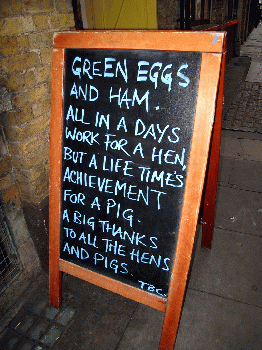 GREEN EGGS
AND HAM.
ALL IN A DAYS
WORK FOR A HEN,
BUT A LIFE TIME'S
ACHIEVEMENT
FOR A PIG.
A BIG THANKS
TO ALL THE HENS
AND PIGS.
TBC.